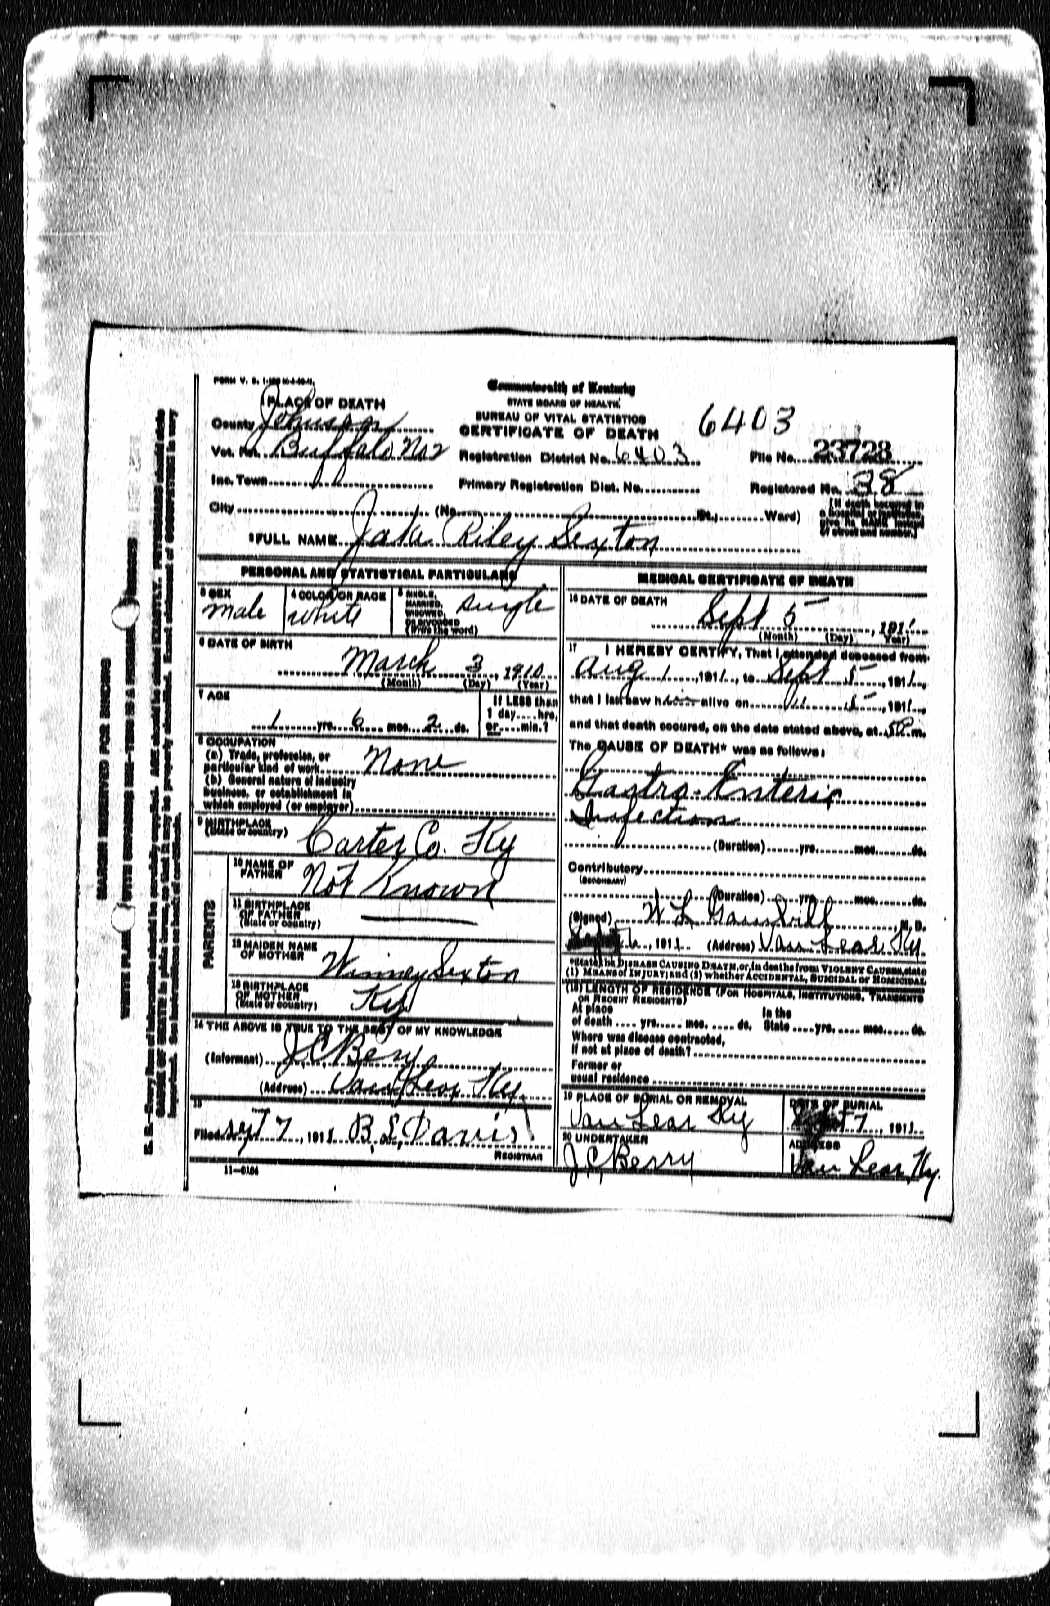 Commonwealth of Kentucky
STATE BOARD OF HEALTH
BUREAU OF VITAL STATISTICS
CERTIFICATE OF DEATH
6403
PLACE OF DEATH
County Johnson
Vot. Pct. Buffalo No 2
Registration District No. 6403
File No. 23728
Inc. Town
Primary Registration Dist. No.
Registered No. 38
City (No. St., Ward)
FULL NAME Jake Riley Sexton
PERSONAL AND STATISTICAL PARTICULARS
3 SEX male
4 COLOR OR RACE white
5 SINGLE, MARRIED, WIDOWED, OR DIVORCED (Write the word) single
6 DATE OF BIRTH
March 3, 1910
(Month) (Day) (Year)
7 AGE
1 yrs. 6 mos. 2 ds.
If LESS than
1 day....hrs.
or....min.?
8 OCCUPATION
(a) Trade, profession, or
particular kind of work None
(b) General nature of industry
business, or establishment in
which employed (or employer)
9 BIRTHPLACE
(State or country) Carter Co. Ky
PARENTS
10 NAME OF
FATHER Not Known
11 BIRTHPLACE
OF FATHER
(State or country)
12 MAIDEN NAME
OF MOTHER Winney Sexton
13 BIRTHPLACE
OF MOTHER
(State or country) Ky
14 THE ABOVE IS TRUE TO THE BEST OF MY KNOWLEDGE
(Informant)
(Address) Van Lear, Ky.
15
Filed Sept 7, 1911 B. L. Davis
REGISTRAR
11-6184
MEDICAL CERTIFICATE OF DEATH
16 DATE OF DEATH
Sept 5, 1911
(Month) (Day) (Year)
17 I HEREBY CERTIFY, That I attended deceased from
Aug 1, 1911, to Sept 5, 1911,
that I last saw him alive on " 5, 1911,
and that death occured, on the date stated above, at 5 P. m.
The CAUSE OF DEATH* was as follows:
Gastro-Enteric
Infection
(Duration) yrs. mos. ds.
Contributory
(SECONDARY)
(Duration) yrs. mos. ds.
(Signed) W L M. D.
1911 (Address) Van Lear Ky
*State the DISEASE CAUSING DEATH, or, in deaths from VIOLENT CAUSES, state
(1) MEANS OF INJURY; and (2) whether ACCIDENTAL, SUICIDAL or HOMICIDAL
(18) LENGTH OF RESIDENCE (FOR HOSPITALS, INSTITUTIONS, TRANSIENTS
OR RECENT RESIDENTS)
At place of death .... yrs. .... mos. .... ds. In the State .... yrs. .... mos. .... ds.
Where was disease contracted,
if not at place of death?
Former or
usual residence
19 PLACE OF BURIAL OR REMOVAL
Van Lear Ky
DATE OF BURIAL
Sept 7, 1911
20 UNDERTAKER
J. C. Berry
ADDRESS
Van Lear, Ky.
MARGIN RESERVED FOR BINDING